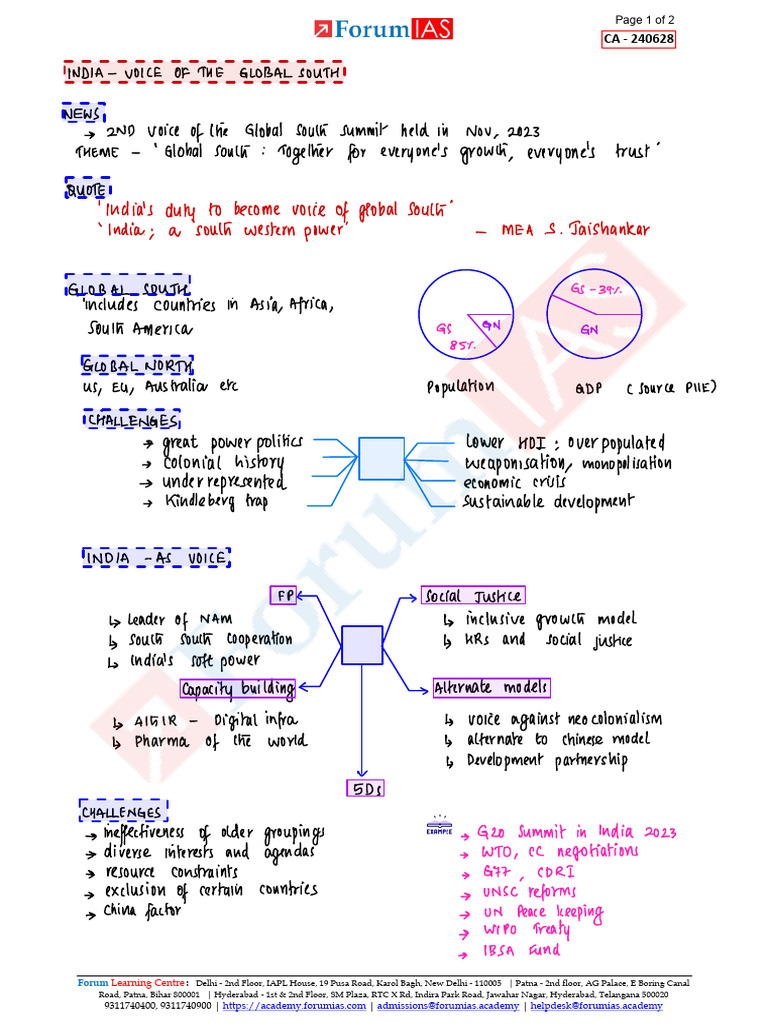 ForumIAS
Page 1 of 2
CA - 240628
INDIA - VOICE OF THE GLOBAL SOUTH
NEWS
→ 2ND Voice of the Global South Summit held in Nov, 2023
THEME - 'Global South : Together for everyone's growth, everyone's trust'
QUOTE
'India's duty to become voice of global South'
'India; a south western power' - MEA S. Jaishankar
GLOBAL SOUTH
includes countries in Asia, Africa,
South America
GLOBAL NORTH
US, EU, Australia etc
GS 85%
GN
Population
GS - 39%
GN
GDP (Source PIIE)
CHALLENGES
→ great power politics
→ colonial history
→ under represented
→ Kindleberg trap
lower HDI ; over populated
weaponisation, monopolisation
economic crisis
sustainable development
INDIA - AS VOICE
FP
↳ leader of NAM
↳ South South Cooperation
↳ India's soft power
Social Justice
↳ inclusive growth model
↳ HRs and social justice
Capacity building
↳ AITIR - Digital infra
↳ Pharma of the world
Alternate models
↳ voice against neocolonialism
↳ alternate to chinese model
↳ Development partnership
5Ds
CHALLENGES
→ ineffectiveness of older groupings
→ diverse interests and agendas
→ resource constraints
→ exclusion of certain countries
→ China factor
EXAMPLE
→ G20 Summit in India 2023
→ WTO, CC negotiations
→ G77, CDRI
→ UNSC reforms
→ UN Peace keeping
→ WIPO Treaty
→ IBSA Fund
Forum Learning Centre: Delhi - 2nd Floor, IAPL House, 19 Pusa Road, Karol Bagh, New Delhi - 110005 | Patna - 2nd floor, AG Palace, E Boring Canal
Road, Patna, Bihar 800001 | Hyderabad - 1st & 2nd Floor, SM Plaza, RTC X Rd, Indira Park Road, Jawahar Nagar, Hyderabad, Telangana 500020
9311740400, 9311740900 | https://academy.forumias.com | admissions@forumias.academy | helpdesk@forumias.academy